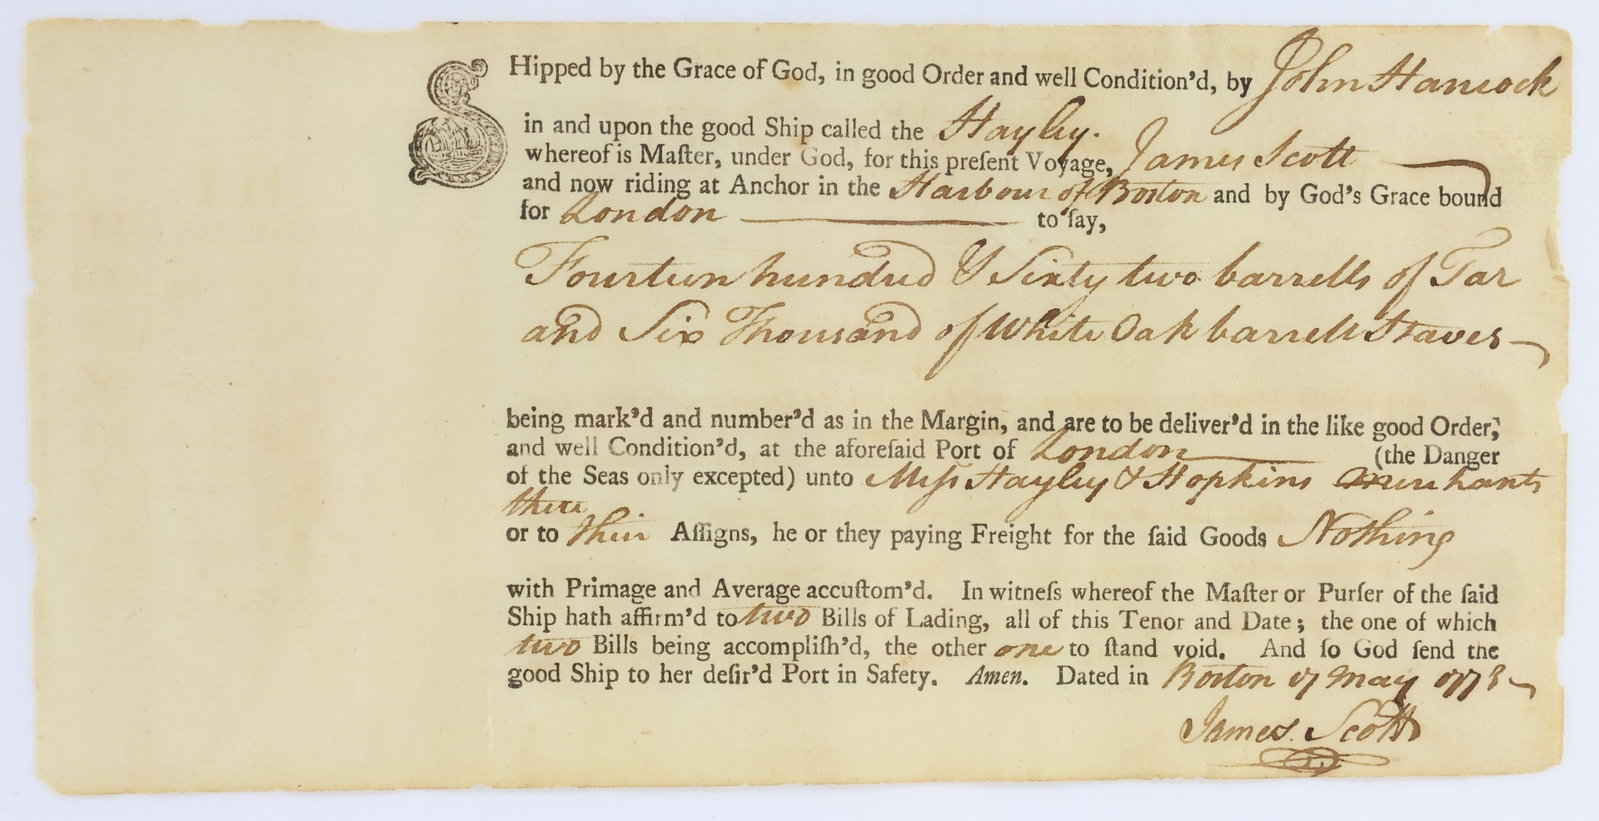 SHipped by the Grace of God, in good Order and well Condition'd, by John Hancock
in and upon the good Ship called the Hayley.
whereof is Maſter, under God, for this preſent Voyage, James Scott
and now riding at Anchor in the Harbour of Boston and by God's Grace bound
for London to ſay,
Fourteen hundred & Sixty two barrells of Tar
and Six Thousand of White Oak barrell Staves
being mark'd and number'd as in the Margin, and are to be deliver'd in the like good Order,
and well Condition'd, at the aforeſaid Port of London (the Danger
of the Seas only excepted) unto Meſs Hayley & Hopkins Merchants
there
or to their Aſſigns, he or they paying Freight for the ſaid Goods Nothing
with Primage and Average accuſtom'd. In witneſs whereof the Maſter or Purſer of the ſaid
Ship hath affirm'd to two Bills of Lading, all of this Tenor and Date; the one of which
two Bills being accompliſh'd, the other one to ſtand void. And ſo God ſend the
good Ship to her deſir'd Port in Safety. Amen. Dated in Boston 17 May 1773
James Scott